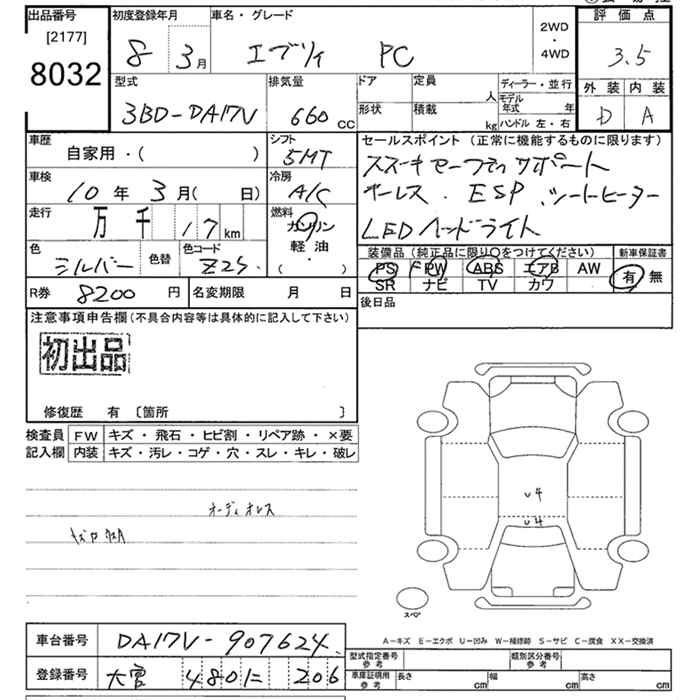 出品番号 初度登録年月 車名・グレード 2WD・4WD 評価点
[2177]
8032 8 3月 エブリィ PC 3.5
外装 内装
D A
型式 排気量 ドア 定員 人 ディーラー・並行
3BD-DA17V 660 CC 形状 積載 kg モデル年式 年
ハンドル 左・右
車歴 シフト セールスポイント (正常に機能するものに限ります)
自家用・( ) 5MT スズキセーフティサポート
車検 冷房
10年 3月( 日) A/C キーレス . ESP . シートヒーター
走行 燃料
万 千 17 km ガソリン LEDヘッドライト
軽油
・( )
色 色替 色コード 装備品 (純正品に限り○をつけてください) 新車保証書
シルバー Z2S. PS PW ABS エアB AW 有・無
SR ナビ TV カワ
R券 8200 円 名変期限 月 日 後日品
注意事項申告欄 (不具合内容等は具体的に記入して下さい)
初出品
修復歴 有 〔箇所 〕
検査員 FW キズ・飛石・ヒビ割・リペア跡・×要
記入欄 内装 キズ・汚レ・コゲ・穴・スレ・キレ・破レ
オーディオレス
U4
U4
スペア
A-キズ E-エクボ U-凹み W-補修跡 S-サビ C-腐食 XX-交換済
車台番号 DA17V-907624.
登録番号 480 に 206
型式指定番号 参考 類別区分番号 参考
車庫証明用 参考 長さ cm 幅 cm 高さ cm